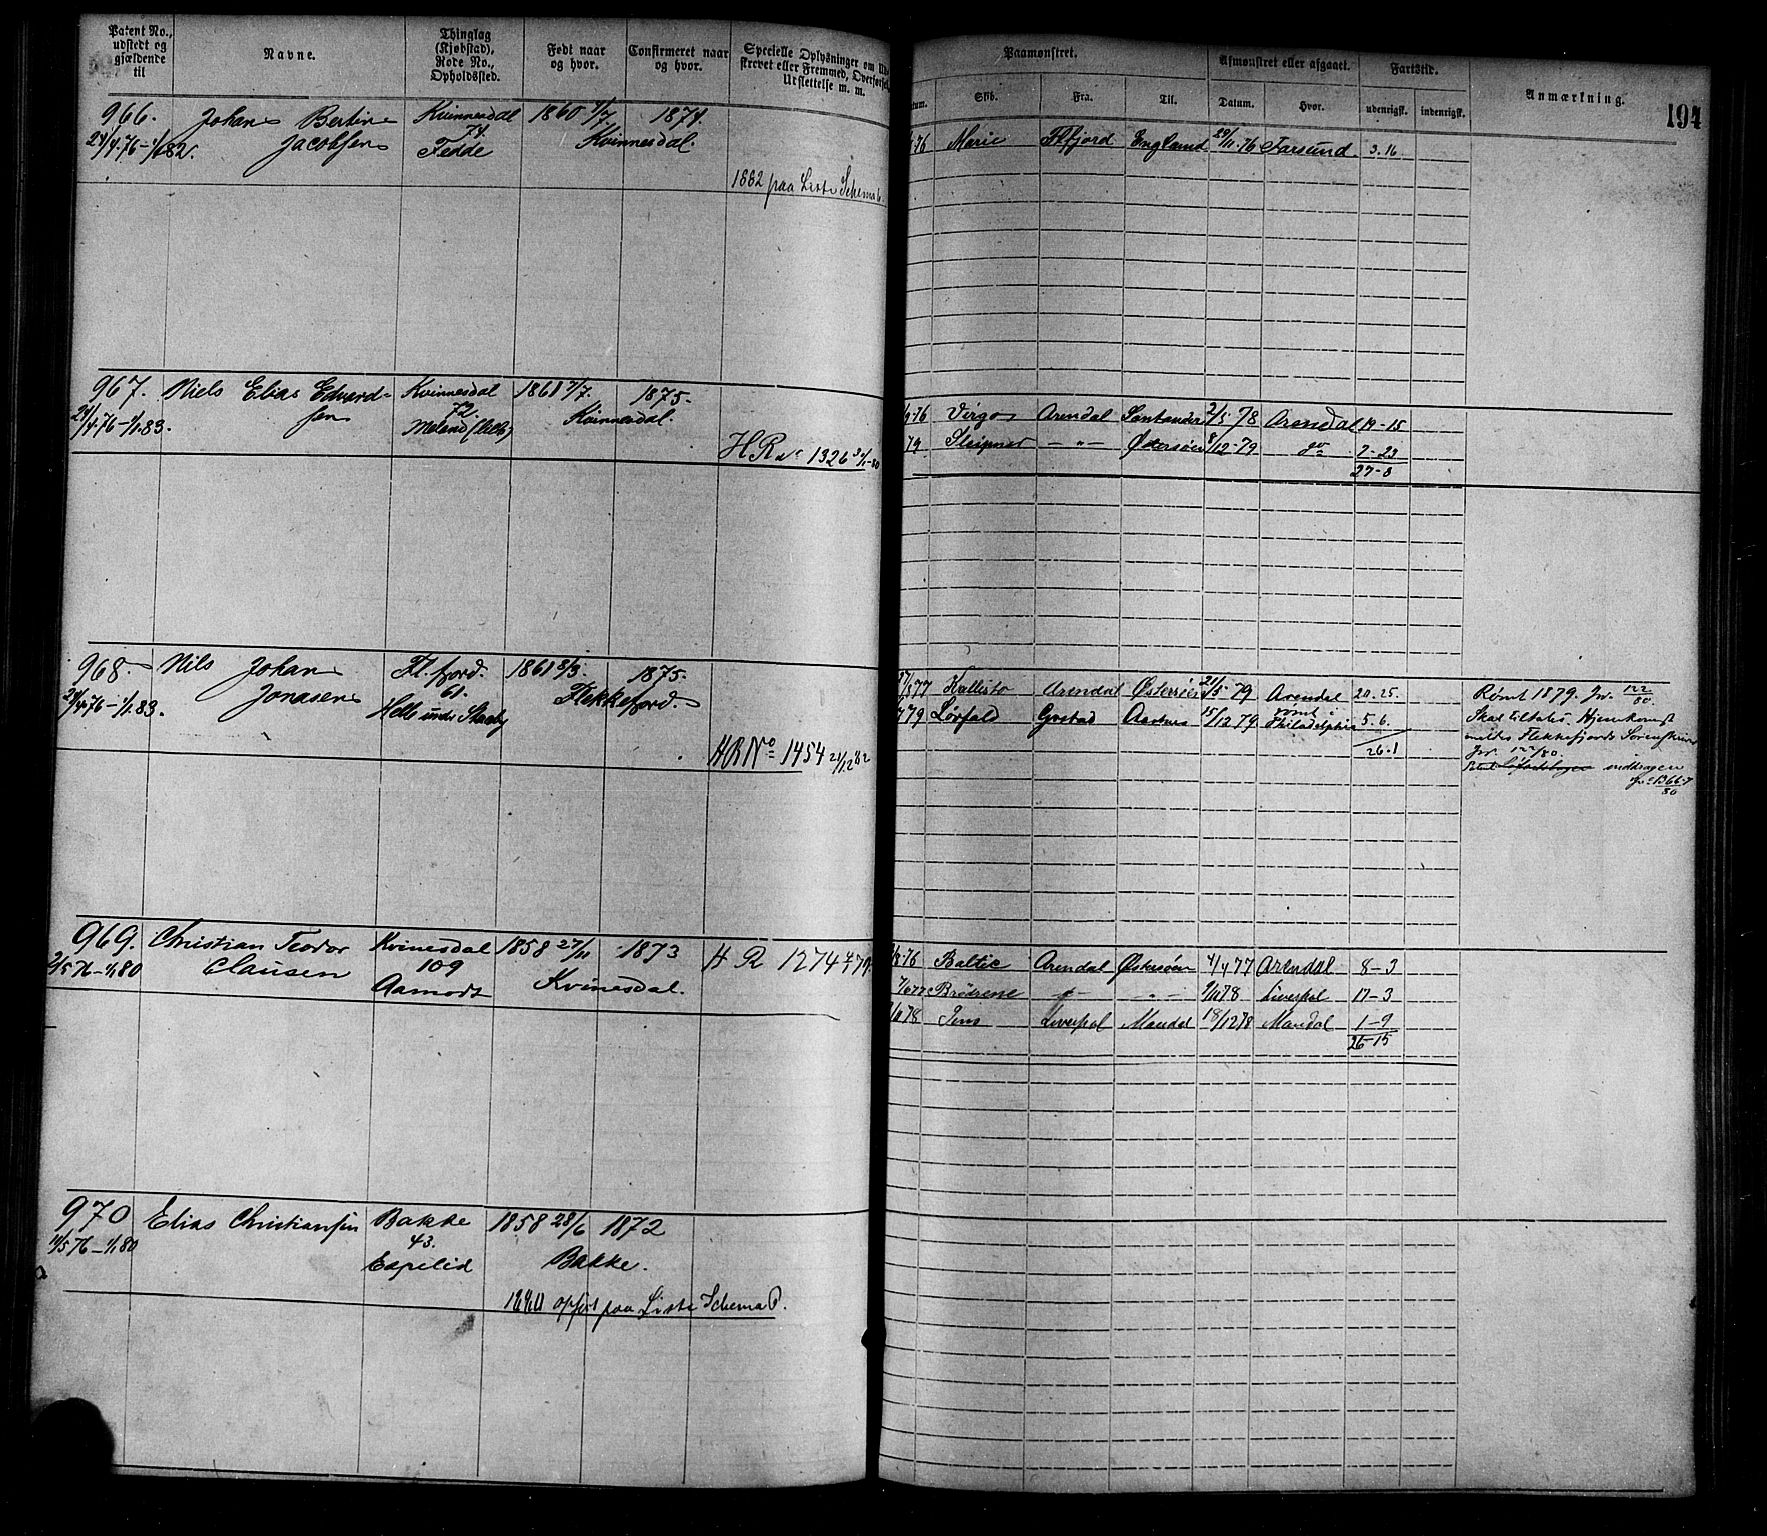 Patent No., udstedt og gjældende til
Navne.
Thinglag (Kjøbstad), Rode No., Opholdssted.
Født naar og hvor.
Confirmeret naar og hvor.
Specielle Oplysninger om
strevet eller Fremmed, Overførsel,
Udslettelse m. m.
Paamønstret.
Skib.
Fra.
Til.
Afmønstret eller afgaaet.
Datum.
Hvor.
Fartstid.
udenrigsk.
indenrigsk.
Anmærkning.
194
966. Johan Bertin Kvinnesdal 1860 1874.
24/4.76 – 1/1 82. Jacobsen 74. Fedde Kvinnesdal.
1882 paa Liste Schema
76 Marie Flfjord England 29/11.76 Farsund. 3.16
967. Niels Elias Edvard- Kvinnesdal 1861 7/7. 1875.
24/4.76 – 1/1.83. sen 72. Kvinnesdal.
H R No 1326
76 Virgo Arendal Santander 2/5 78 Arendal 19-15
79 Sleipner — " — Østersøen 8/12-79 do 7-23
27-8
968. Nils Johan Fl.fjord. 1861 8/3. 1875.
24/4.76 – 1/1.83. Jonasen 61. Flekkefjord.
Helle under
H R No 1454 21/12 82
77 Kallisto Arendal Østersøen 21/5 79 Arendal 20.25.
79 Grstad 15/12 79 rømt i Philadelphia 5.6.
26.1
Rømt 1879. Jnr. 122/80.
Skal tiltales. Hjemkomst
meldes Flekkefjords Sorenskriver
Jnr. 122/80
inddragen
1366/80
969. Christian Teodor Kvinesdal 1858 27/11 1873 H R 1274
2/5 76 – 1/1 80 Clausen 109 Kvinesdal.
Aamodt
76 Baltic Arendal Østersøen 4/4 77 Arendal 8-3
77 Brødrene — " — 78 Liverpol 17-3
78 Jens Liverpol Mandal 18/12 78 Mandal 1-9
26-15
970 Elias Christiansen Bakke 1858 28/6 1872
5 76 – 1/1 80 43. Bakke.
Espelid
1880 opført paa Liste Schema P.